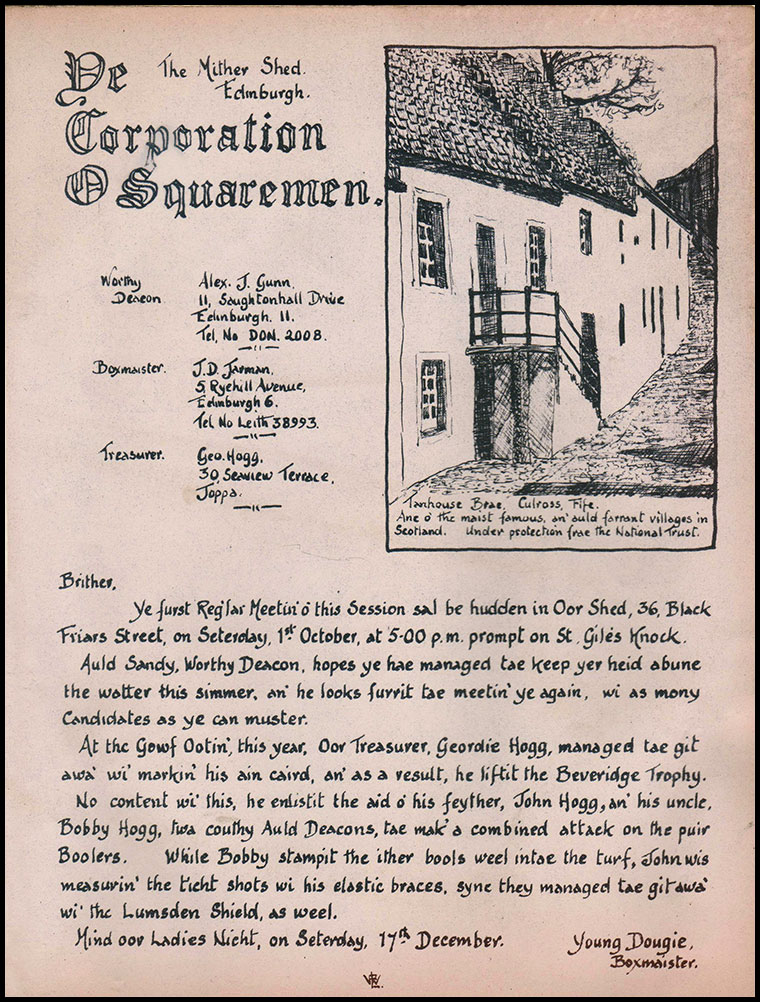 Ye
Corporation
O Squaremen.
The Mither Shed.
Edinburgh.
Worthy
Deacon
Alex. J. Gunn,
11, Saughtonhall Drive
Edinburgh. 11.
Tel. No DON. 2008.
Boxmaister.
J.D. Jarman,
5, Ryehill Avenue,
Edinburgh 6.
Tel No Leith 38993.
Treasurer.
Geo. Hogg,
30, Seaview Terrace,
Joppa.
Tanhouse Brae, Culross, Fife.
Ane o' the maist famous, an' auld farrant villages in
Scotland. Under protection frae the National Trust.
Brither,
Ye furst Reg'lar Meetin' o' this Session sal be hudden in Oor Shed, 36, Black
Friars Street, on Seterday, 1st October, at 5-00 p.m. prompt on St. Gile's Knock.
Auld Sandy, Worthy Deacon, hopes ye hae managed tae keep yer heid abune
the watter this simmer, an' he looks furrit tae meetin' ye again, wi as mony
Candidates as ye can muster.
At the Gowf Ootin', this year, Oor Treasurer, Geordie Hogg, managed tae git
awa' wi' markin' his ain caird, an' as a result, he liftit the Beveridge Trophy.
No content wi' this, he enlistit the aid o' his feyther, John Hogg, an' his uncle,
Bobby Hogg, twa couthy Auld Deacons, tae mak' a combined attack on the puir
Boolers. While Bobby stampit the ither bools weel intae the turf, John wis
measurin' the ticht shots wi his elastic braces, syne they managed tae git awa'
wi' the Lumsden Shield, as weel.
Mind oor Ladies Nicht, on Seterday, 17th December.
Young Dougie,
Boxmaister.